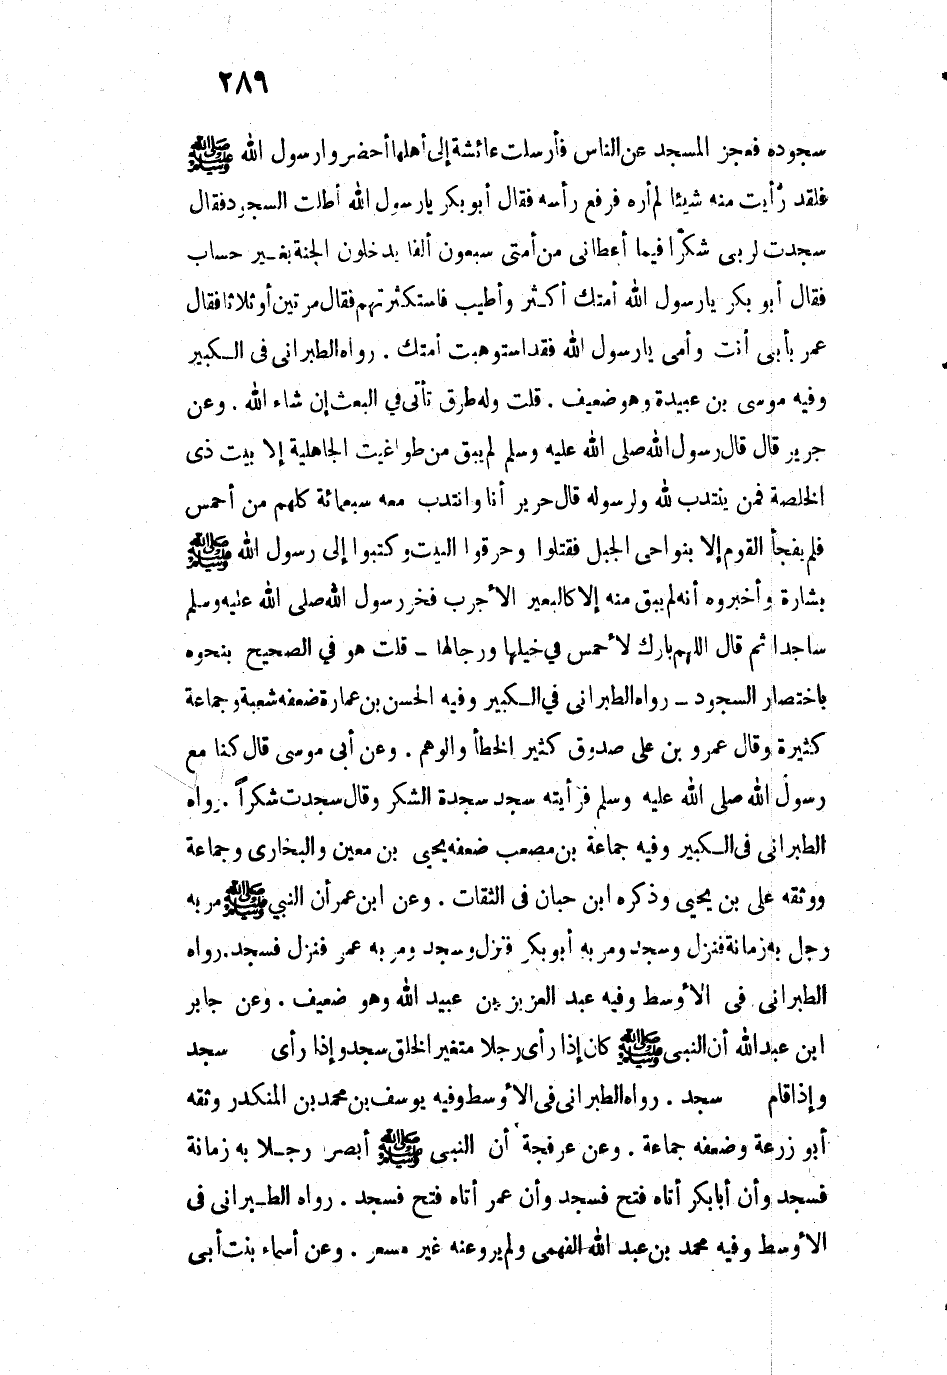 ٢٨٩
سجوده فعجز المسجد عن الناس فأرسلت عائشة إلى أهلها أحضروا رسول الله ﷺ
فلقد رأيت منه شيئا لم أره فرفع رأسه فقال أبو بكر يارسول الله أطلت السجود فقال
سجدت لربى شكرا فيما أعطانى من أمتى سبعون ألفا يدخلون الجنة بغير حساب
فقال أبو بكر يارسول الله أمتك أكثر وأطيب فاستكثرتهم فقال مرتين أو ثلاثا فقال
عمر بأبى أنت وأمى يارسول الله فقد استوهبت أمتك . رواه الطبرانى فى الكبير
وفيه موسى بن عبيدة وهو ضعيف . قلت وله طرق تأتى في البعث إن شاء الله . وعن
جرير قال قال رسول الله صلى الله عليه وسلم لم يبق من طواغيت الجاهلية إلا بيت ذى
الخلصة فمن ينتدب لله ولرسوله قال جرير أنا وانتدب معه سبعمائة كلهم من أحمس
فلم يفجأ القوم إلا بنواحى الجبل فقتلوا وحرقوا البيت وكتبوا إلى رسول الله ﷺ
بشارة وأخبروه أنه لم يبق منه إلا كالبعير الأجرب فخر رسول الله صلى الله عليه وسلم
ساجدا ثم قال اللهم بارك لأحمس في خيلها ورجالها ــ قلت هو في الصحيح بنحوه
باختصار السجود ــ رواه الطبرانى في الكبير وفيه الحسن بن عمارة ضعفه شعبة وجماعة
كثيرة وقال عمرو بن على صدوق كثير الخطأ والوهم . وعن أبى موسى قال كنا مع
رسول الله صلى الله عليه وسلم فرأيته سجد سجدة الشكر وقال سجدت شكراً . رواه
الطبرانى فى الكبير وفيه جماعة بن مصعب ضعفه يحيى بن معين والبخارى وجماعة
ووثقه على بن يحيى وذكره ابن حبان فى الثقات . وعن ابن عمر أن النبي ﷺ مر به
رجل به زمانة فنزل وسجد ومر به أبو بكر فنزل وسجد ومر به عمر فنزل فسجد . رواه
الطبرانى فى الأوسط وفيه عبد العزيز بن عبيد الله وهو ضعيف . وعن جابر
ابن عبد الله أن النبى ﷺ كان إذا رأى رجلا متغير الخلق سجد وإذا رأى سجد
وإذا قام سجد . رواه الطبرانى فى الأوسط وفيه يوسف بن محمد بن المنكدر وثقه
أبو زرعة وضعفه جماعة . وعن عرفجة أن النبى ﷺ أبصر رجلا به زمانة
فسجد وأن أبابكر أتاه فتح فسجد وأن عمر أتاه فتح فسجد . رواه الطبرانى فى
الأوسط وفيه محمد بن عبد الله الفهمى ولم يرو عنه غير مسعر . وعن أسماء بنت أبى